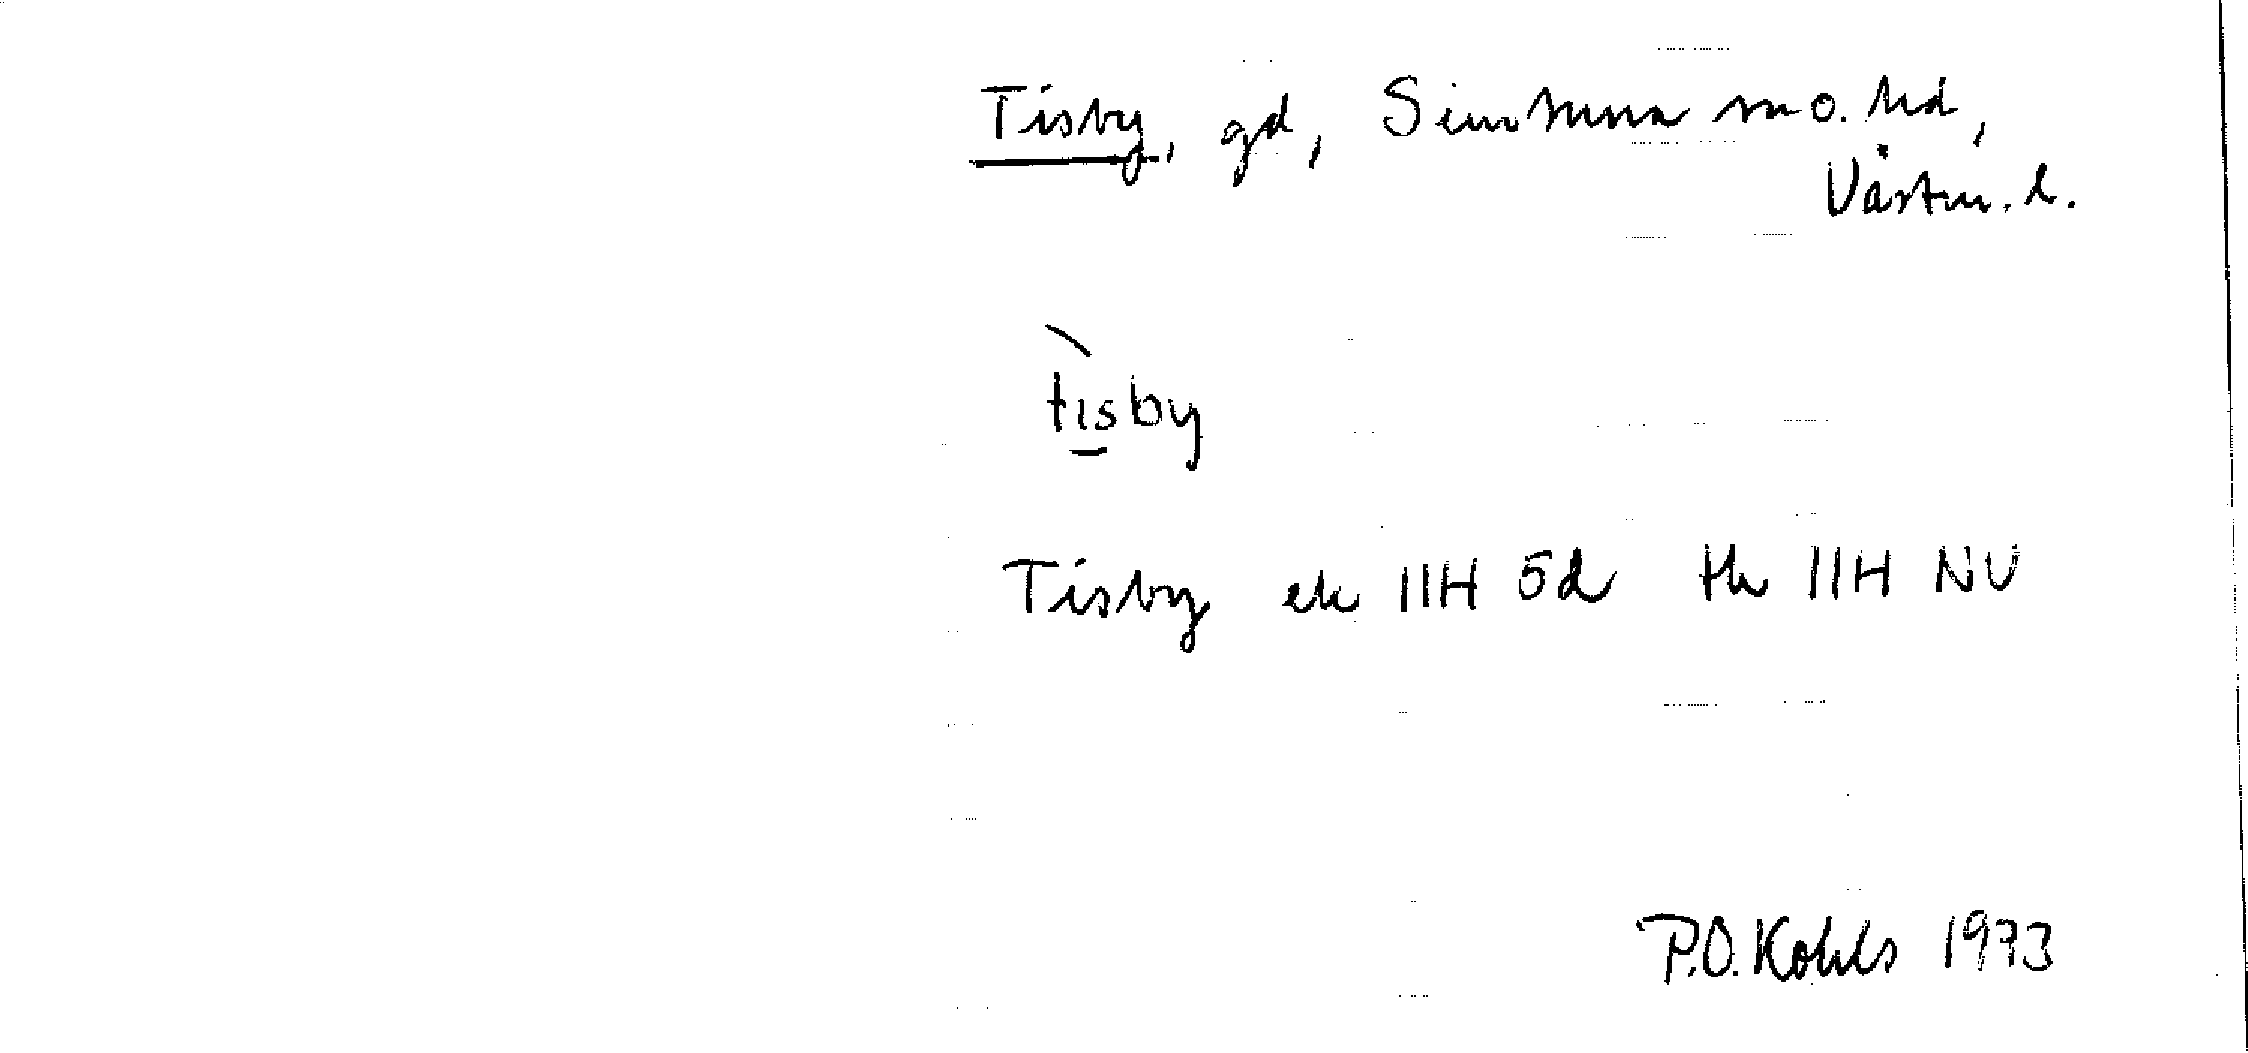 Tisby, gd, Simtuna sn o. hd,
Västm. l.
tisby
Tisby ek 11H 5d th 11H NV
P.O. Kohls 1973